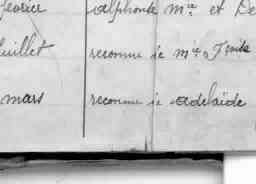 fevrier alphonse Mce et De
juillet reconnu ie Mce
mars reconnu ie adelaïde